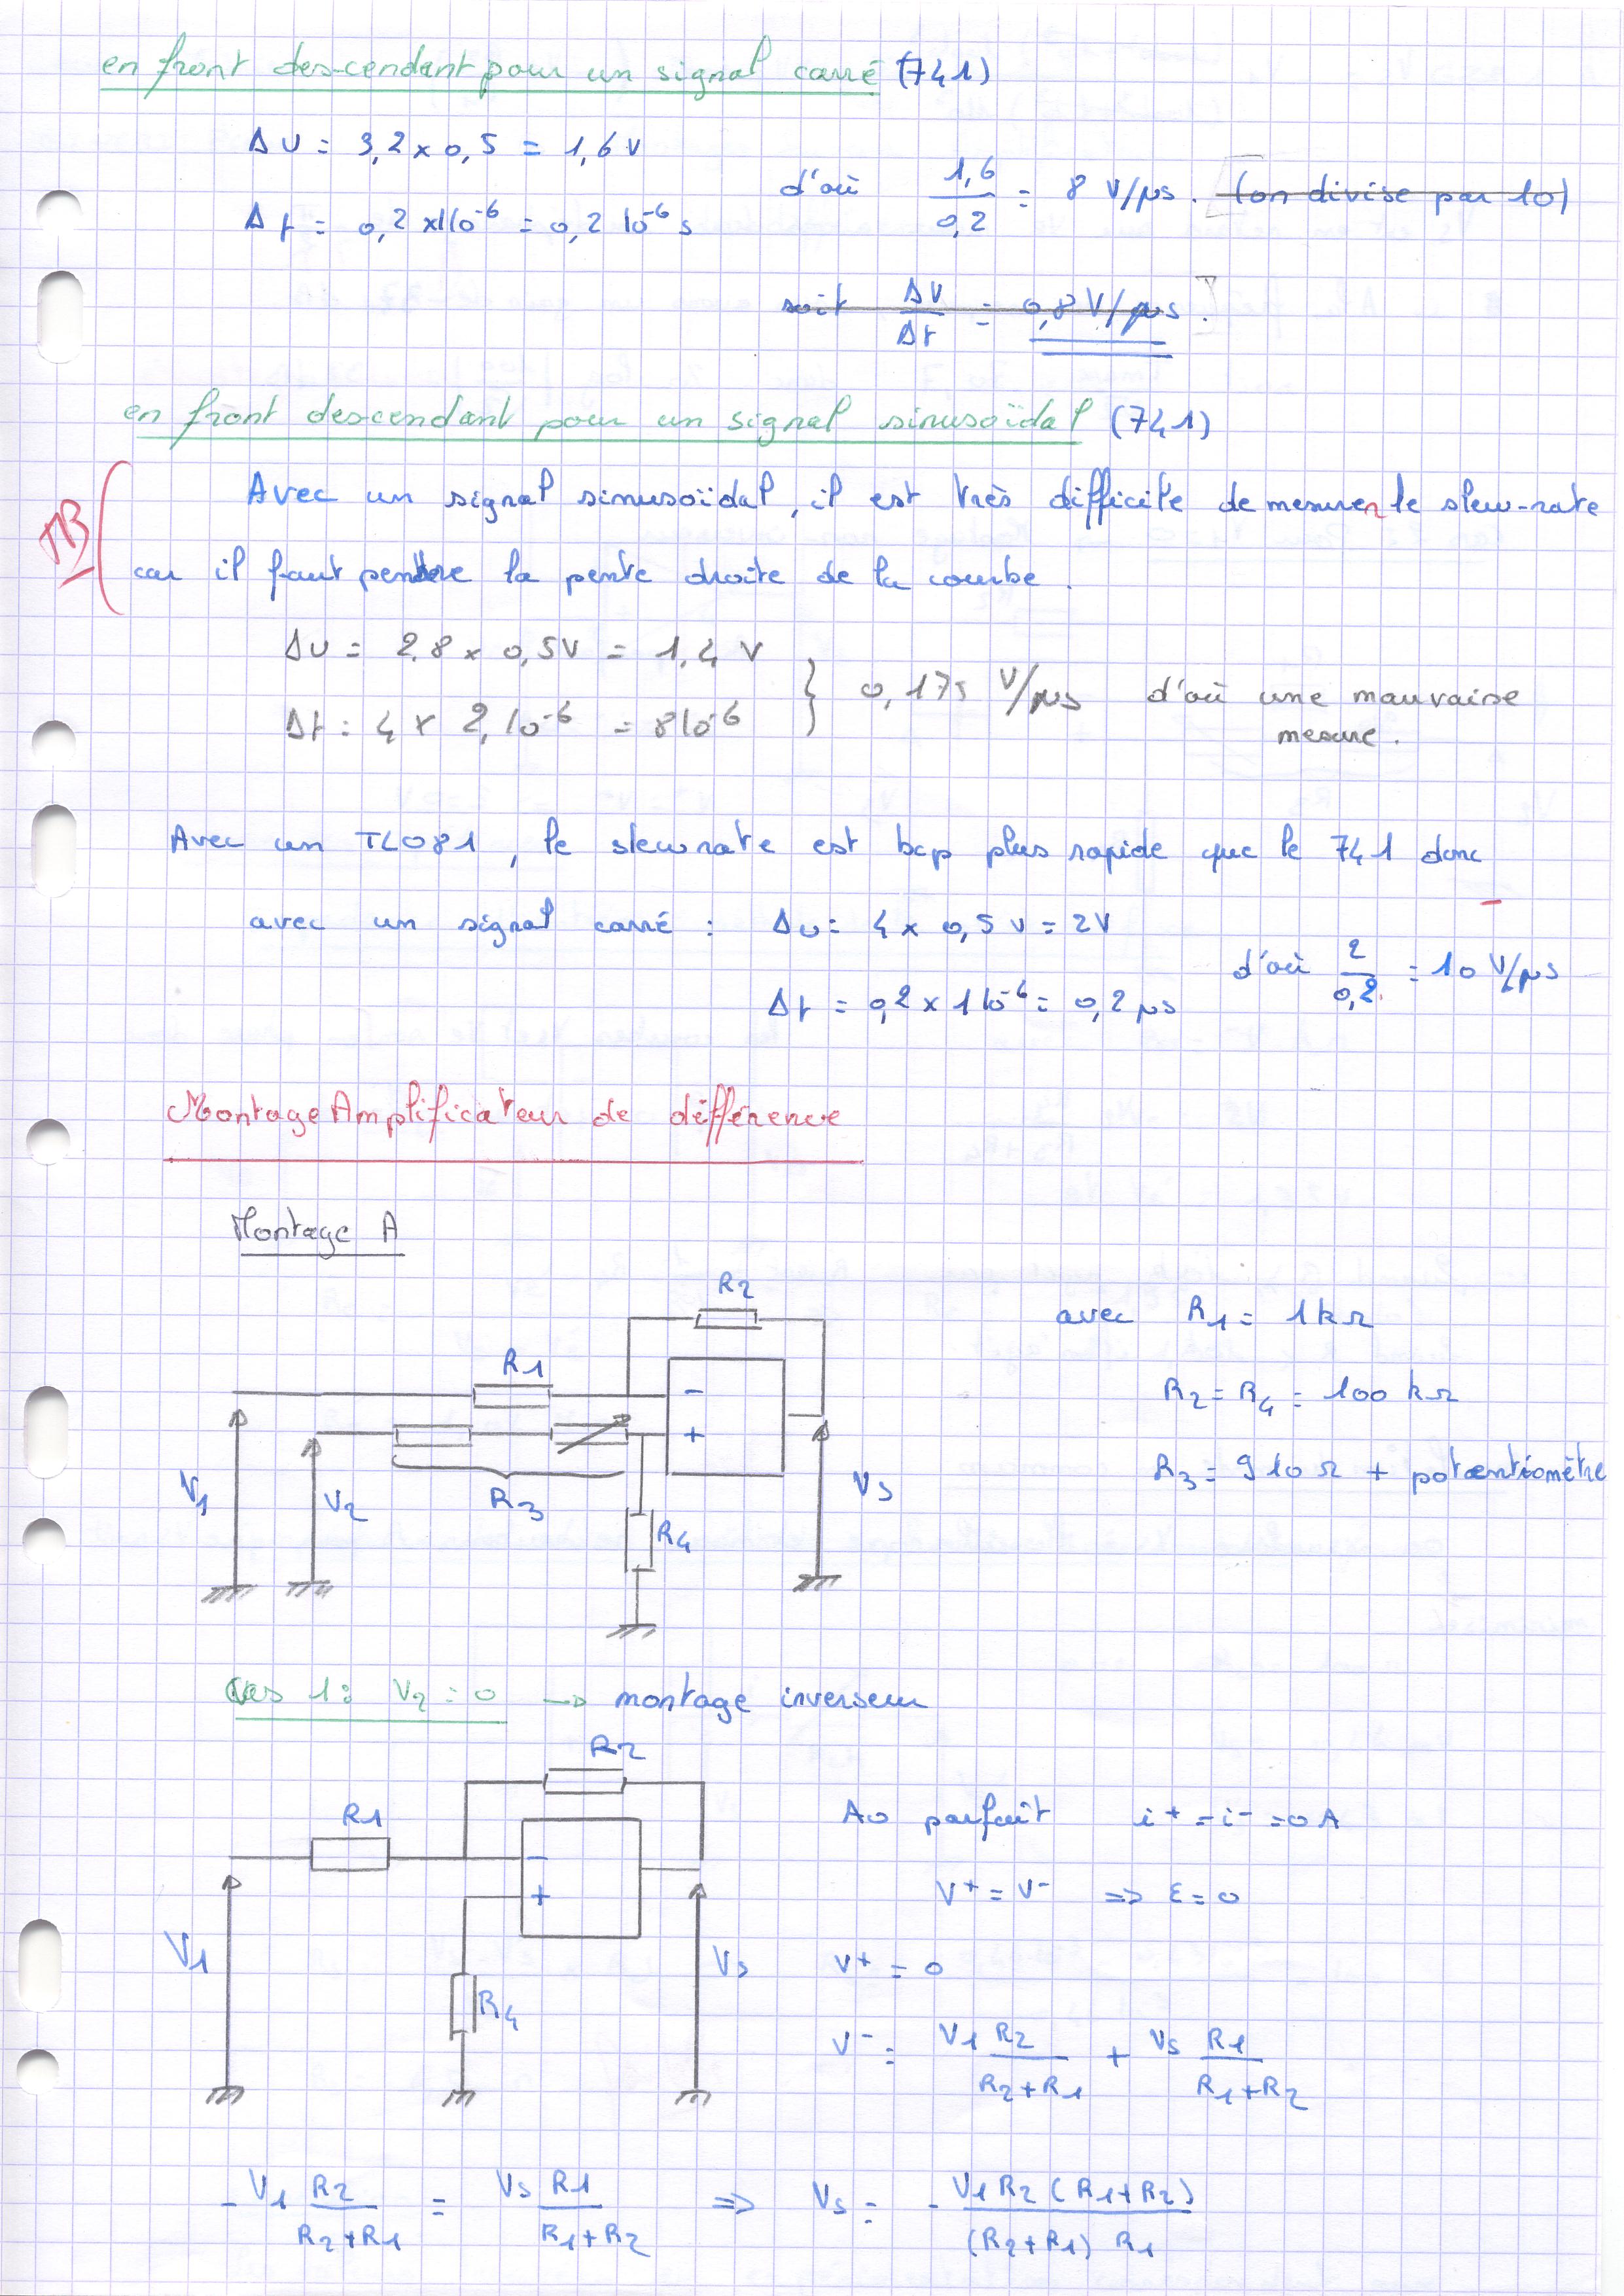 en front descendant pour un signal carré (741)
ΔU = 3,2 x 0,5 = 1,6 V
d'où 1,6 / 0,2 = 8 V/µs. (on divise par 10)
Δt = 0,2 x 1 10^-6 = 0,2 10^-6 s
soit ΔV / Δt = 0,8 V/µs.
en front descendant pour un signal sinusoïdal (741)
TB
Avec un signal sinusoïdal, il est très difficile de mesurer le slew-rate
car il faut pendre la pente droite de la courbe.
ΔU = 2,8 x 0,5V = 1,4 V
} 0,175 V/µs d'où une mauvaise
Δt = 4 x 2, 10^-6 = 8 10^-6
mesure.
Avec un TL081, le slew rate est bcp plus rapide que le 741 donc
avec un signal carré : ΔU = 4 x 0,5 V = 2V
d'où 2 / 0,2 = 10 V/µs
Δt = 0,2 x 1 10^-6 = 0,2 µs
Montage Amplificateur de différence
Montage A
R2
avec R1 = 1kΩ
R1
R2 = R4 = 100 kΩ
-
+
R3 = 910 Ω + potentiomètre
V1
V2
R3
Vs
R4
Cas 1: V2 = 0 → montage inverseur
R2
R1
AO parfait i+ = i- = 0 A
-
+
V+ = V- => ε = 0
V1
Vs
V+ = 0
R4
V- = V1 R2 / (R2+R1) + Vs R1 / (R1+R2)
- V1 R2 / (R2+R1) = Vs R1 / (R1+R2) => Vs = - V1 R2 (R1+R2) / (R2+R1) R1